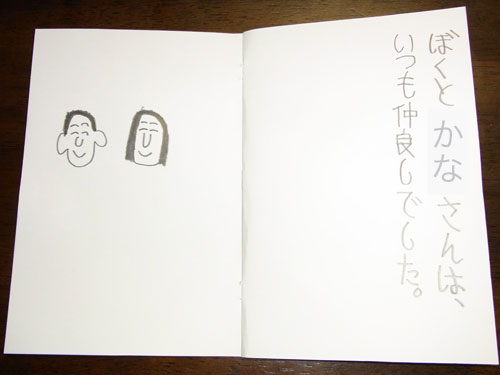 ぼくとかなさんは、
いつも仲良しでした。